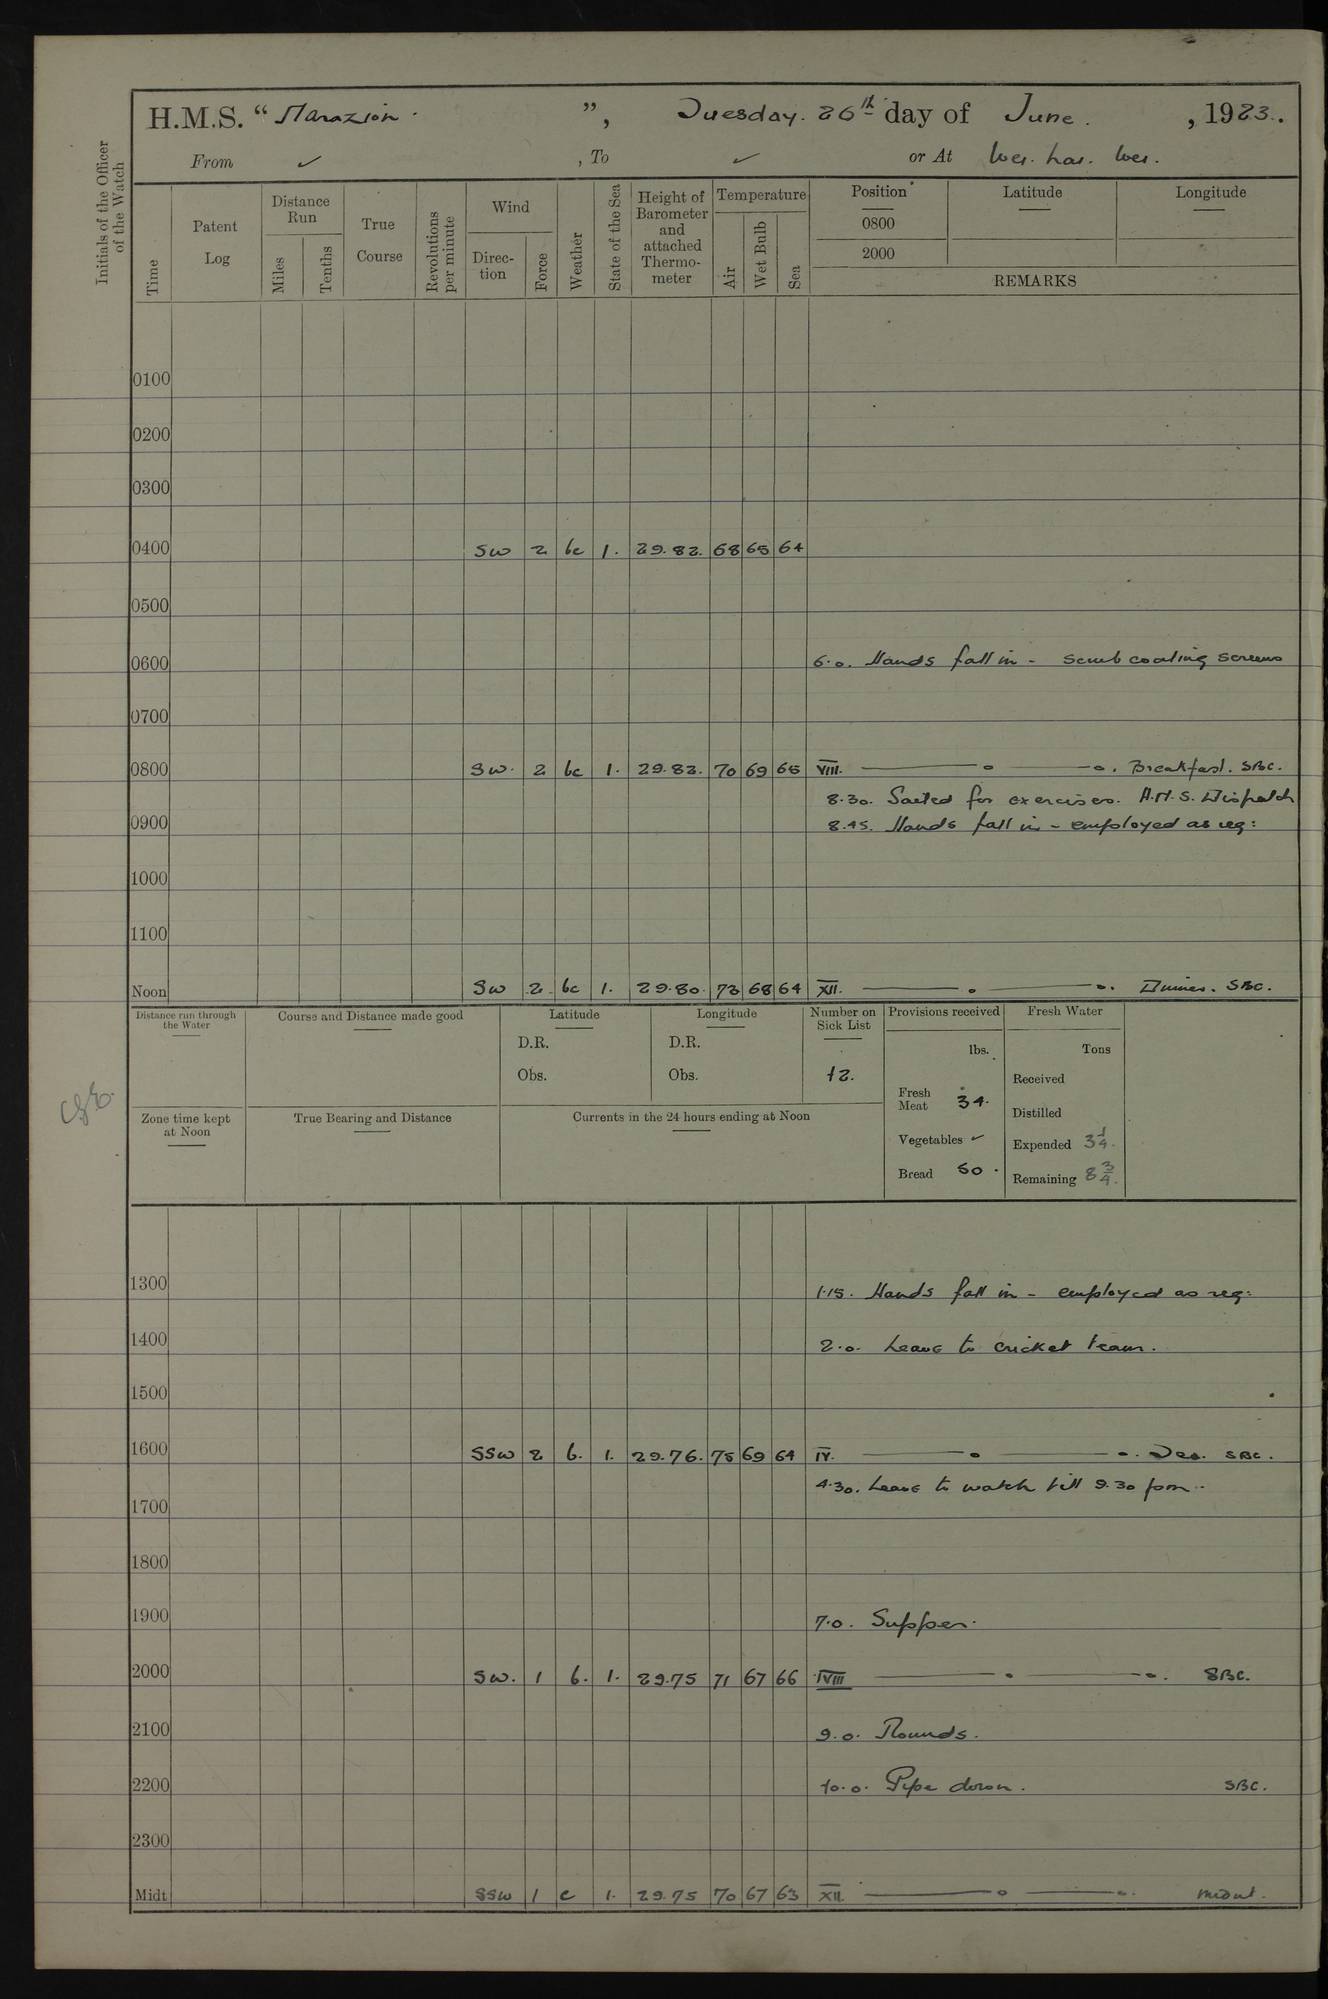 H.M.S. “ Marazion. ”, Tuesday. 26th day of June. , 1923.
From ✓ , To ✓ or At Wei. hai. Wei.
Initials of the Officer of the Watch
Time
Patent Log
Distance Run
Miles
Tenths
True Course
Revolutions per minute
Wind
Direc-tion
Force
Weather
State of the Sea
Height of Barometer and attached Thermo-meter
Temperature
Air
Wet Bulb
Sea
Position
Latitude
Longitude
0800
2000
REMARKS
0100
0200
0300
0400 SW 2 bc 1. 29.82. 68 65 64
0500
0600 6.0. Hands fall in - scrub coaling screens
0700
0800 SW. 2 bc 1. 29.82. 70 69 65 VIII. Breakfast. SBC.
8.30. Sailed for exercises. H.M.S. Dispatch
0900 8.45. Hands fall in - employed as req:
1000
1100
Noon SW 2 bc 1. 29.80. 73 68 64 XII. Dinner. SBC.
Distance run through the Water
Course and Distance made good
Latitude
D.R.
Obs.
Longitude
D.R.
Obs.
Number on Sick List
12.
Provisions received
lbs.
Fresh Meat 34.
Vegetables ✓
Bread 50.
Fresh Water
Tons
Received
Distilled
Expended 3 1/4.
Remaining 8 3/4.
Zone time kept at Noon
True Bearing and Distance
Currents in the 24 hours ending at Noon
1300 1.15. Hands fall in - employed as req:
1400 2.0. Leave to cricket team.
1500
1600 SSW 2 b. 1. 29.76. 75 69 64 IV. Tea. SBC.
4.30. Leave to watch till 9.30 pm.
1700
1800
1900 7.0. Supper.
2000 SW. 1 b. 1. 29.75 71 67 66 IVIII SBC.
2100 9.0. Rounds.
2200 10.0. Pipe down. SBC.
2300
Midt SSW 1 c 1. 29.75 70 67 63 XII. midnt.